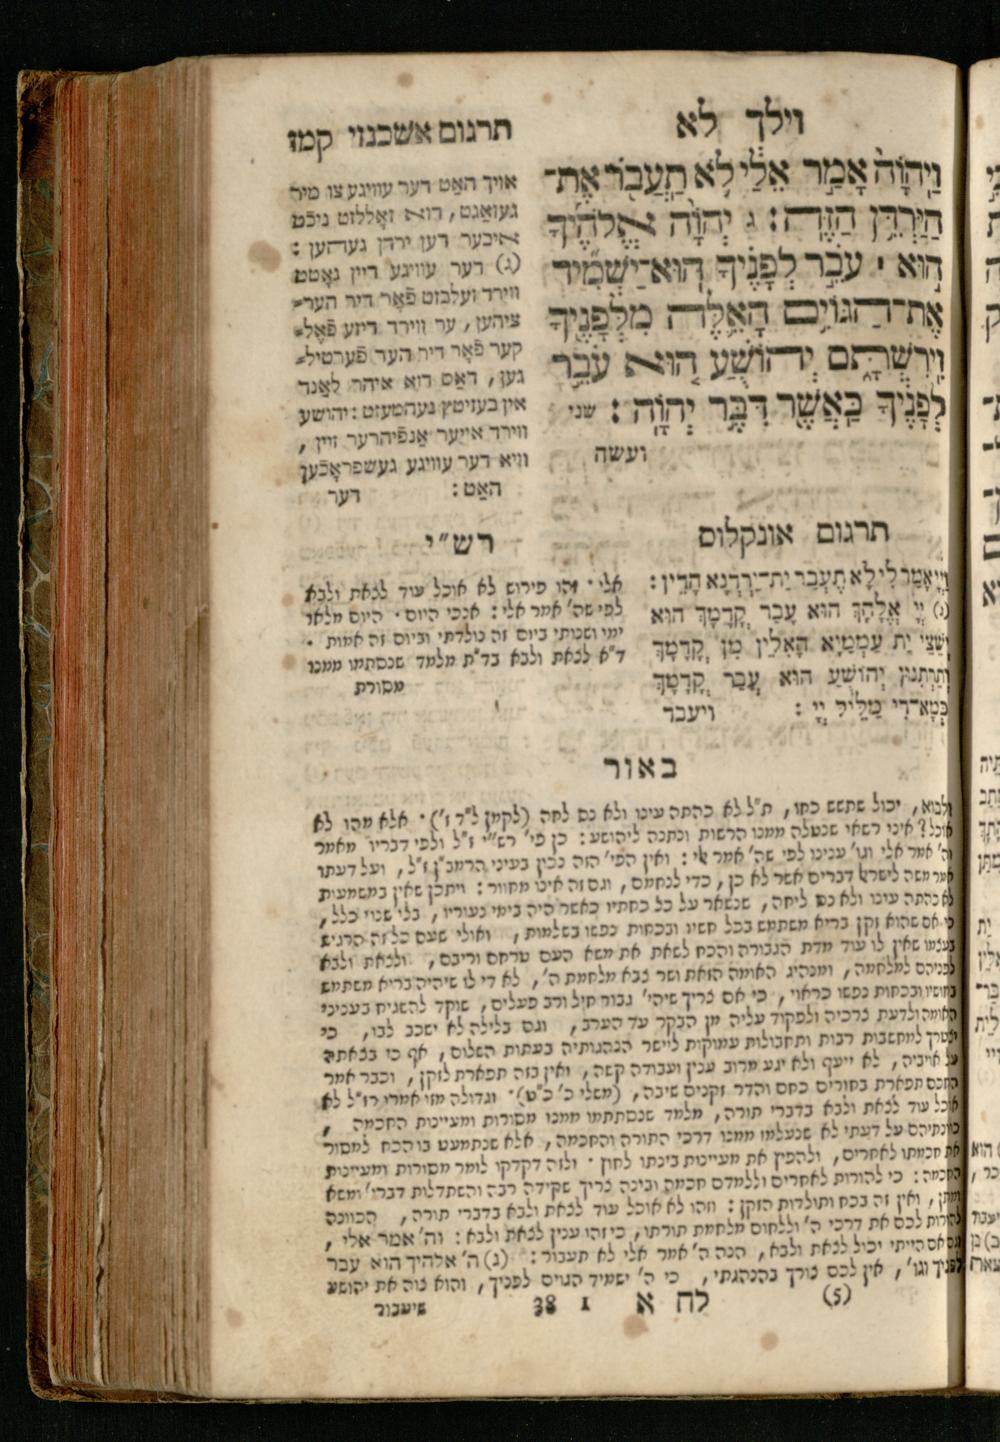 וילך לא
תרגום אשכנזי קמז
וַיהֹוָה אָמַר אֵלַי לֹא תַעֲבֹר אֶת־
הַיַּרְדֵּן הַזֶּה׃ ג יְהֹוָה אֱלֹהֶיךָ
הוּא ׀ עֹבֵר לְפָנֶיךָ הוּא־יַשְׁמִיד
אֶת־הַגּוֹיִם הָאֵלֶּה מִלְּפָנֶיךָ
וִירִשְׁתָּם יְהוֹשֻׁעַ הוּא עֹבֵר
לְפָנֶיךָ כַּאֲשֶׁר דִּבֶּר יְהֹוָה׃ שני
ועשה
אויך האַט דער עוויגע צו מיר
געזאַגט, דוא זאָללזט ניכֿט
איבער דען ירדן געהען :
(ג) דער עוויגע דיין גאָטט
ווירד זעלבזט פֿאָר דיר הער־
ציהען, ער ווירד דיזע פֿאָל־
קער פֿאָר דיר העד פֿערטיל־
גען, דאַס דוא איהר לאַנד
אין בעזיטץ נעהמעזט : יהושע
ווירד אייער אַנפֿיהרער זיין,
וויא דער עוויגע געשפראָכֿען
האַט : דער
תרגום אונקלוס
וַיְיָ אֲמַר לִי לָא תֶעְבַּר יַת־יַרְדְּנָא הָדֵין :
(ג) יְיָ אֱלָהָךְ הוּא עָבַר קֳדָמָךְ הוּא
יְשֵׁצֵי יַת עַמְמַיָּא הָאִלֵּין מִן קֳדָמָךְ
וְתֵירְתִנּוּן יְהוֹשֻׁעַ הוּא עָבַר קֳדָמָךְ
כְּמָא־דִי מַלֵּיל יְיָ : ויעבד
רש״י
אלי · זהו פירוש לא אוכל עוד לצאת ולבא
לפי שה׳ אמר אלי : אנכי היום · היום מלאו
ימי ושנותי ביום זה נולדתי וביום זה אמות ·
ד״א לצאת ולבא בד״ת מלמד שנסתמו ממנו
מסורת
באור
ולבוא, יכול שתשש כחו, ת״ל לא כהתה עינו ולא נס לחה (לקמן ל״ד ז׳) · אלא מהו לא
אוכל? איני רשאי שנטלה ממנו הרשות ונתנה ליהושע : כן פי׳ רש״י ז״ל ולפי דבריו מאמר
וה׳ אמר אלי וגו׳ ענינו לפי שה׳ אמר לי : ואין הפי׳ הזה נכון בעיני הרמב״ן ז״ל, ועל דעתו
אמר משה לישראל דברים אשר לא כן, כדי לנחמם, וגם זה אינו מחוור : ויתכן שאין במשמעות
לא כהתה עינו ולא נס ליחה, שנשאר על כל כחתיו כאשר היה בימי נעוריו, בלי שנוי כלל,
כי אם שהוא זקן בריא משתמש בכל חשיו ובכחות נפשו בשלמות, ואולי שעם כל זה הרגיש
בעצמו שאין לו עוד מדת הגבורה והכח לשאת את משא העם טרחם וריבם, ולצאת ולבא
לפניהם למלחמה, ומנהיג האומה הזאת ושר צבא מלחמת ה׳, לא די לו שיהיה בריא משתמש
בחושיו ובכחות נפשו כראוי, כי אם צריך שיהי׳ גבור חיל ורב פעלים, שוקד להשגיח בעניני
האומה ולדעת צרכיה ולפקוד עליה מן הבקר עד הערב, וגם בלילה לא ישכב לבו, כי
יצטרך למחשבות רבות ותחבולות עמוקות ליישר הנהגותיה בעתות השלום, אף כי בצאתה
על אויביה, לא ייעף ולא יגע מרוב ענין ועבודה קשה, ואין בזה תפארת לזקן, וכבר אמר
החכם תפארת בחורים כחם והדר זקנים שיבה, (משלי כ׳ כ״ט) · וגדולה מזו אמרי רז״ל לא
אוכל עוד לצאת ולבא בדברי תורה, מלמד שנסתתמו ממנו מסורות ומעיינות החכמה,
כוונתיהם על דעתי לא שנעלמו ממנו דרכי התורה והחכמה, אלא שנתמעט בו הכח למסור
את חכמתו לאחרים, ולהפיץ את מעיינות בינתו לחוץ · ולזה דקדקו לומר מסורות ומעיינות
החכמה : כי להורות לאחרים וללמדם חכמה ובינה צריך שקידה רבה והשתדלות דברי׳ ומשא
ומתן, ואין זה בכח ותולדות הזקן : וזהו לא אוכל עוד לצאת ולבא בדברי תורה, הכוונה
להורות לכם את דרכי ה׳ וללחום מלחמת תורתו, כי זהו ענין לצאת ולבא : וה׳ אמר אלי,
וגם אם הייתי יכול לצאת ולבא, הנה ה׳ אמר אלי לא תעבור : (ג) ה׳ אלהיך הוא עבר
לפניך וגו׳, אין לכם צורך בהנהגתי, כי ה׳ ישמיד הגוים לפניך, והוא צוה את יהושע
(5) לח א 1 38 שיעבור